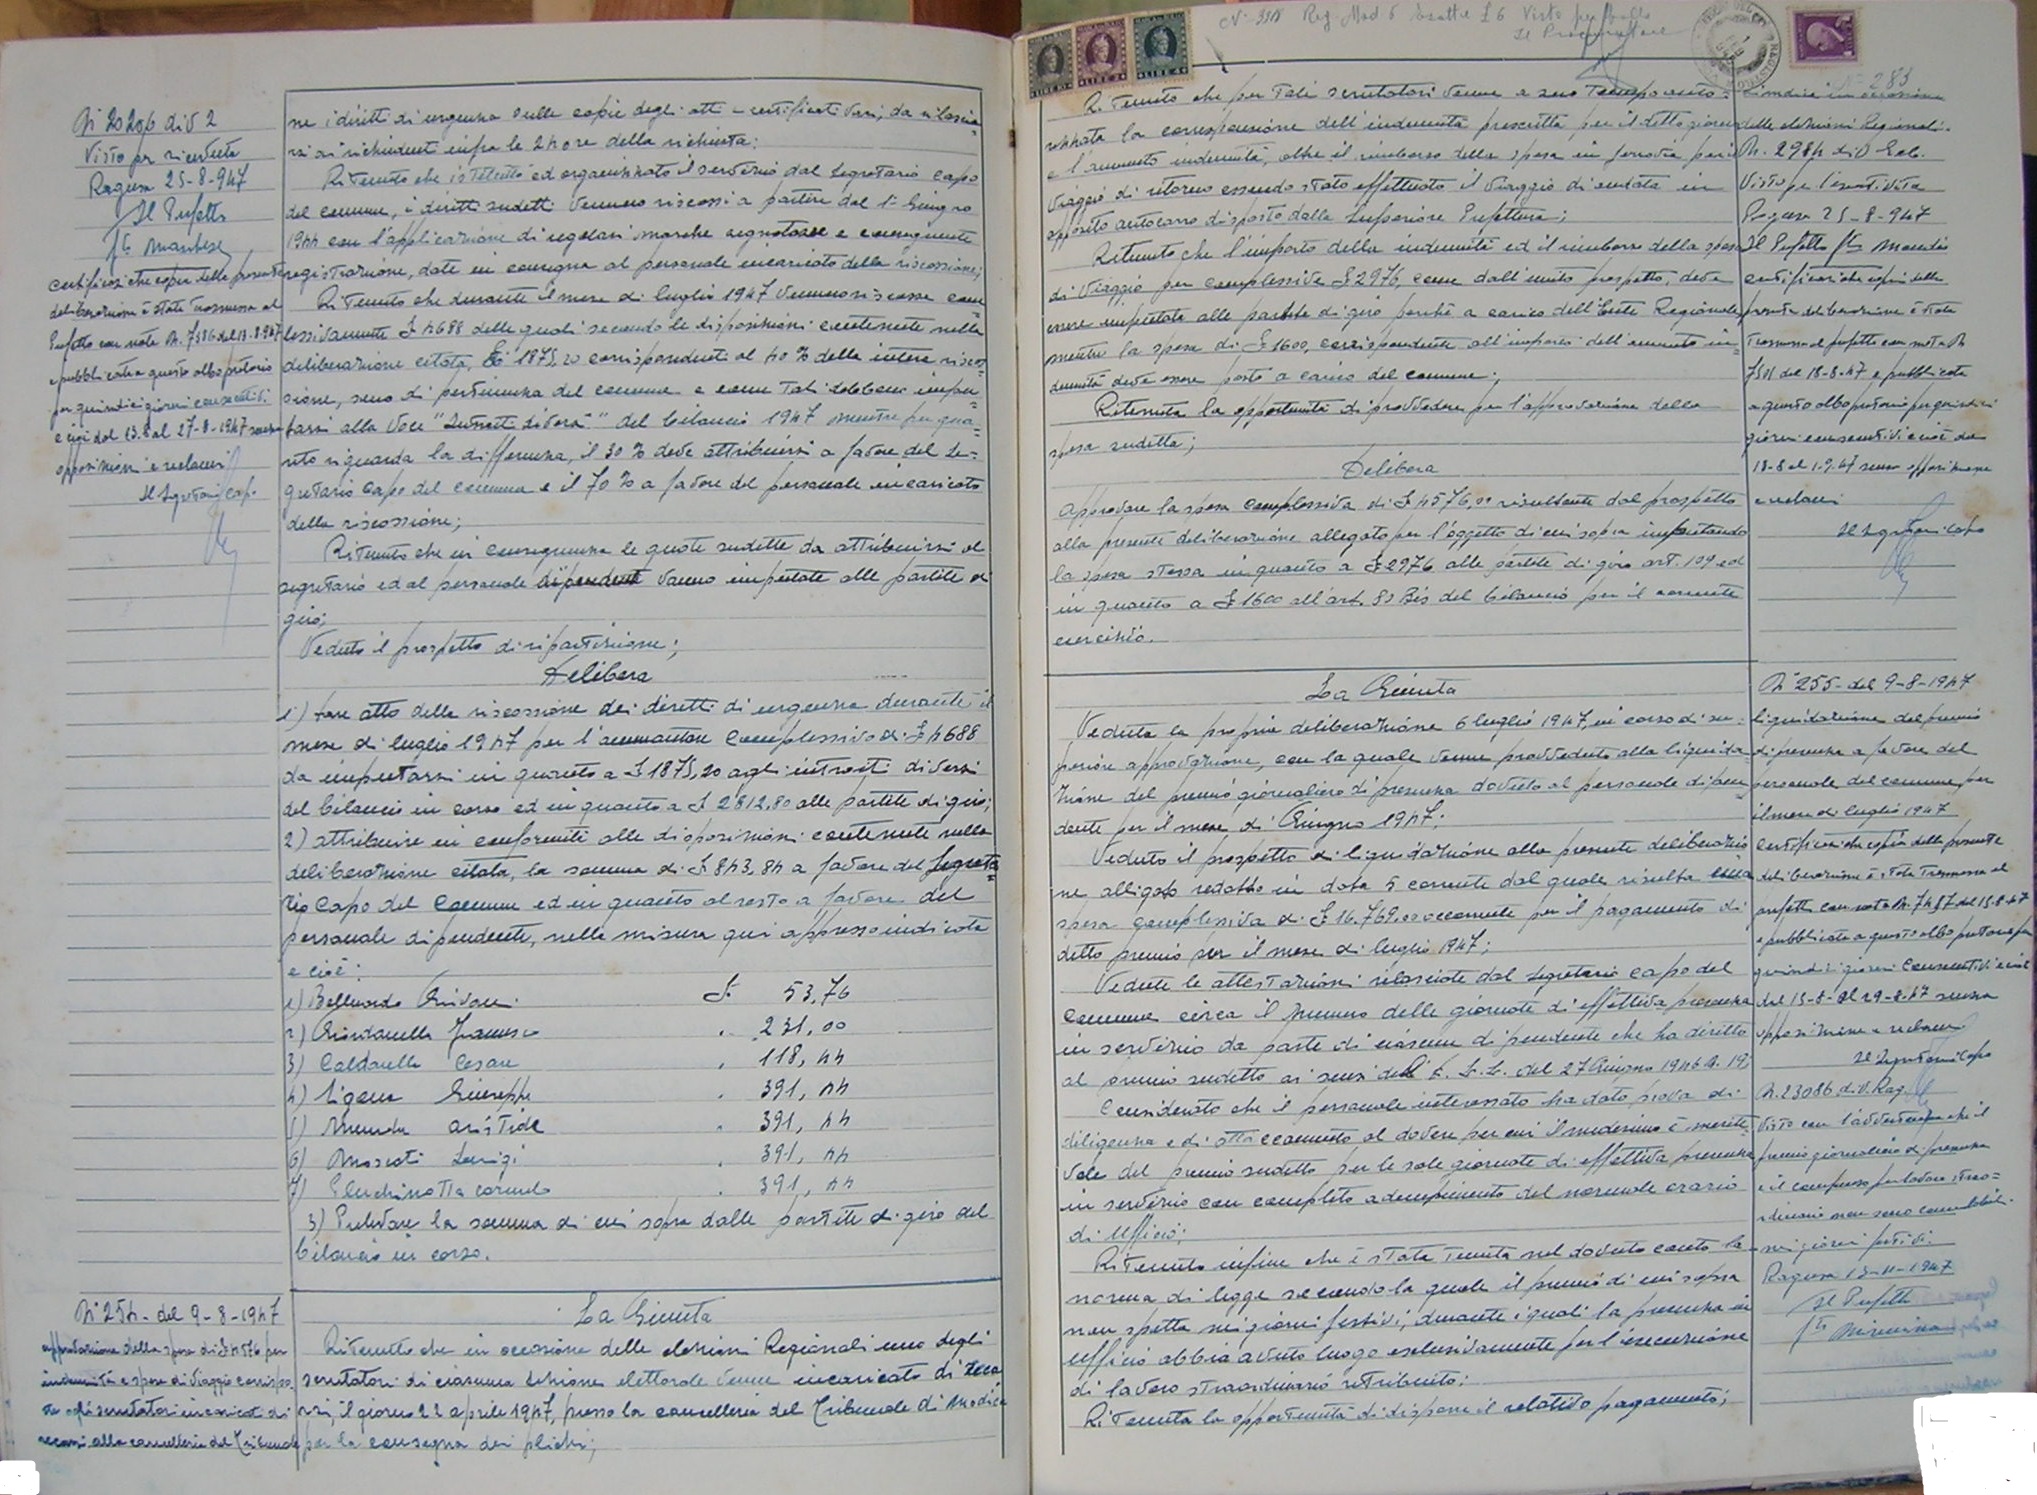 N° 20206 div 2
Visto per ricevuta
Ragusa 25-8-947
Il Prefetto
certificasi che copia della presente
deliberazione è stata trasmessa al
Prefetto con nota N. 7386 del 13-8-947
e pubblicata a questo albo pretorio
per quindici giorni consecutivi
e cioè dal 13.8 al 27-8-1947 senza
opposizioni e reclami
Il Segretario Capo
N° 254 - del 9-8-1947
approvazione della spesa di £ 4576 per
indennità e spese di viaggio corrispo-
ste agli scrutatori incaricati di
recarsi alla cancelleria del Tribunale
ne i diritti di urgenza sulle copie degli atti - certificati vari, da rilascia-
rsi ai richiedenti infra le 24 ore della richiesta;
Ritenuto che istituito ed organizzato il servizio dal Segretario Capo
del comune, i diritti sudetti vennero riscossi a partire dal 1° Giugno
1944 con l'applicazione di regolari marche segnatasse e conseguente
registrazione, date in consegna al personale incaricato della riscossione;
Ritenuto che durante il mese di luglio 1947 vennero riscosse com-
plessivamente £ 4688 delle quali secondo le disposizioni contenute nella
deliberazione citata, £ 1875,20 corrispondenti al 40 % della intera riscos-
sione, sono di pertinenza del comune e come tali debbono impu-
tarsi alla voce "Introiti diversi" del bilancio 1947 mentre per qua-
nto riguarda la differenza, il 30 % deve attribuirsi a favore del Se-
gretario Capo del comune e il 70 % a favore del personale incaricato
della riscossione;
Ritenuto che in conseguenza le quote sudette da attribuirsi al
segretario ed al personale dipendente vanno imputate alle partite di
giro;
Veduto il prospetto di ripartizione;
Delibera
1) fare atto della riscossione dei diritti di urgenza durante il
mese di luglio 1947 per l'ammontare complessivo di £ 4688
da imputarsi in quanto a £ 1875,20 agli introiti diversi
del bilancio in corso ed in quanto a £ 2812,80 alle partite di giro;
2) attribuire in conformità alle disposizioni contenute nella
deliberazione citata, la somma di £ 843,84 a favore del Segreta-
rio Capo del Comune ed in quanto al resto a favore del
personale dipendente, nella misura qui appresso indicata
e cioè:
1) Belluardo £ 53,76
2) Giordanella Francesco " 231,00
3) Caldarella Cesare " 118,44
4) Ligama Giuseppe " 391,44
5) Aristide " 391,44
6) Luigi " 391,44
7) Pluchinotta Carmelo " 391,44
3) Prelevare la somma di cui sopra dalle partite di giro del
bilancio in corso.
La Giunta
Ritenuto che in occasione delle elezioni Regionali uno degli
scrutatori di ciascuna Sezione elettorale venne incaricato di reca-
rsi, il giorno 22 aprile 1947, presso la cancelleria del Tribunale di Modica
per la consegna dei plichi;
Reg. Mod 6 Esatte £ 6 Visto per bollo
Il Procuratore
LIRE
LIRE 2
LIRE 4
N° 283
Ritenuto che per tali scrutatori venne a suo tempo auto-
rizzata la corresponsione dell'indennità prescritta per il detto giorno
e l'aumento indennità, oltre il rimborso della spesa in ferrovia per il
viaggio di ritorno essendo stato effettuato il viaggio di andata in
apposito autocarro disposto dalla Superiore Prefettura;
Ritenuto che l'importo della indennità ed il rimborso della spesa
di viaggio per complessive £ 2976, come dall'unito prospetto, deve
essere imputato alle partite di giro perchè a carico dell'Ente Regionale,
mentre la spesa di £ 1600, corrispondente all'importo dell'aumento in-
dennità deve essere posto a carico del comune;
Ritenuta la opportunità di provvedere per l'approvazione della
spesa sudetta;
Delibera
Approvare la spesa complessiva di £ 4576,00 risultante dal prospetto
alla presente deliberazione allegato per l'oggetto di cui sopra imputando
la spesa stessa in quanto a £ 2976 alle partite di giro art. 109 ed
in quanto a £ 1600 all'art. 80 Bis del bilancio per il corrente
esercizio.
La Giunta
Veduta la propria deliberazione 6 luglio 1947, in corso di su-
periore approvazione, con la quale venne provveduto alla liquida-
zione del premio giornaliero di presenza dovuto al personale dipen-
dente per il mese di Giugno 1947;
Veduto il prospetto di liquidazione alla presente deliberazio-
ne alligato redatto in data 5 corrente dal quale risulta una
spesa complessiva di £ 16.769,00 occorrente per il pagamento di
detto premio per il mese di luglio 1947;
Vedute le attestazioni rilasciate dal Segretario Capo del
Comune circa il numero delle giornate di effettiva presenza
in servizio da parte di ciascun dipendente che ha diritto
al premio sudetto ai sensi del D. L. L. del 27 Giugno 1946 N. 19;
Considerato che il personale interessato ha dato prova di
diligenza e di attaccamento al dovere per cui il medesimo è merite-
vole del premio sudetto per le sole giornate di effettiva presenza
in servizio con completo adempimento del normale orario
di Ufficio;
Ritenuto infine che è stata tenuta nel dovuto conto la
norma di legge secondo la quale il premio di cui sopra
non spetta nei giorni festivi, durante i quali la presenza in
Ufficio abbia avuto luogo esclusivamente per l'esecuzione
di lavoro straordinario retribuito;
Ritenuta la opportunità di disporre il relativo pagamento;
di Modica in occasione
delle elezioni Regionali.
N. 2984 div Gab.
Visto per l'esecutività
Ragusa 25-8-947
Il Prefetto
certificasi che copia della
presente deliberazione è stata
trasmessa al prefetto con nota N.
del 18-8-47 e pubblicata
a questo albo pretorio per quindici
giorni consecutivi e cioè dal
18-8 al 1-9-47 senza opposizione
e reclami
Il Segretario Capo
N° 255 - del 9-8-1947
liquidazione del premio
di presenza a favore del
personale del comune per
il mese di luglio 1947
Certificasi che copia della presente
deliberazione è stata trasmessa al
prefetto con nota N. 7437 del 13-8-47
e pubblicata a questo albo pretorio per
quindici giorni consecutivi e cioè
dal 15-8- al 29-8-47 senza
opposizione e reclami
Il Segretario Capo
N. 23086 div. Rag.
Visto con l'avvertenza che il
premio giornaliero di presenza
e il compenso per lavoro strao-
rdinario non sono cumulabili
nei giorni festivi.
Ragusa 13-11-1947
Il Prefetto